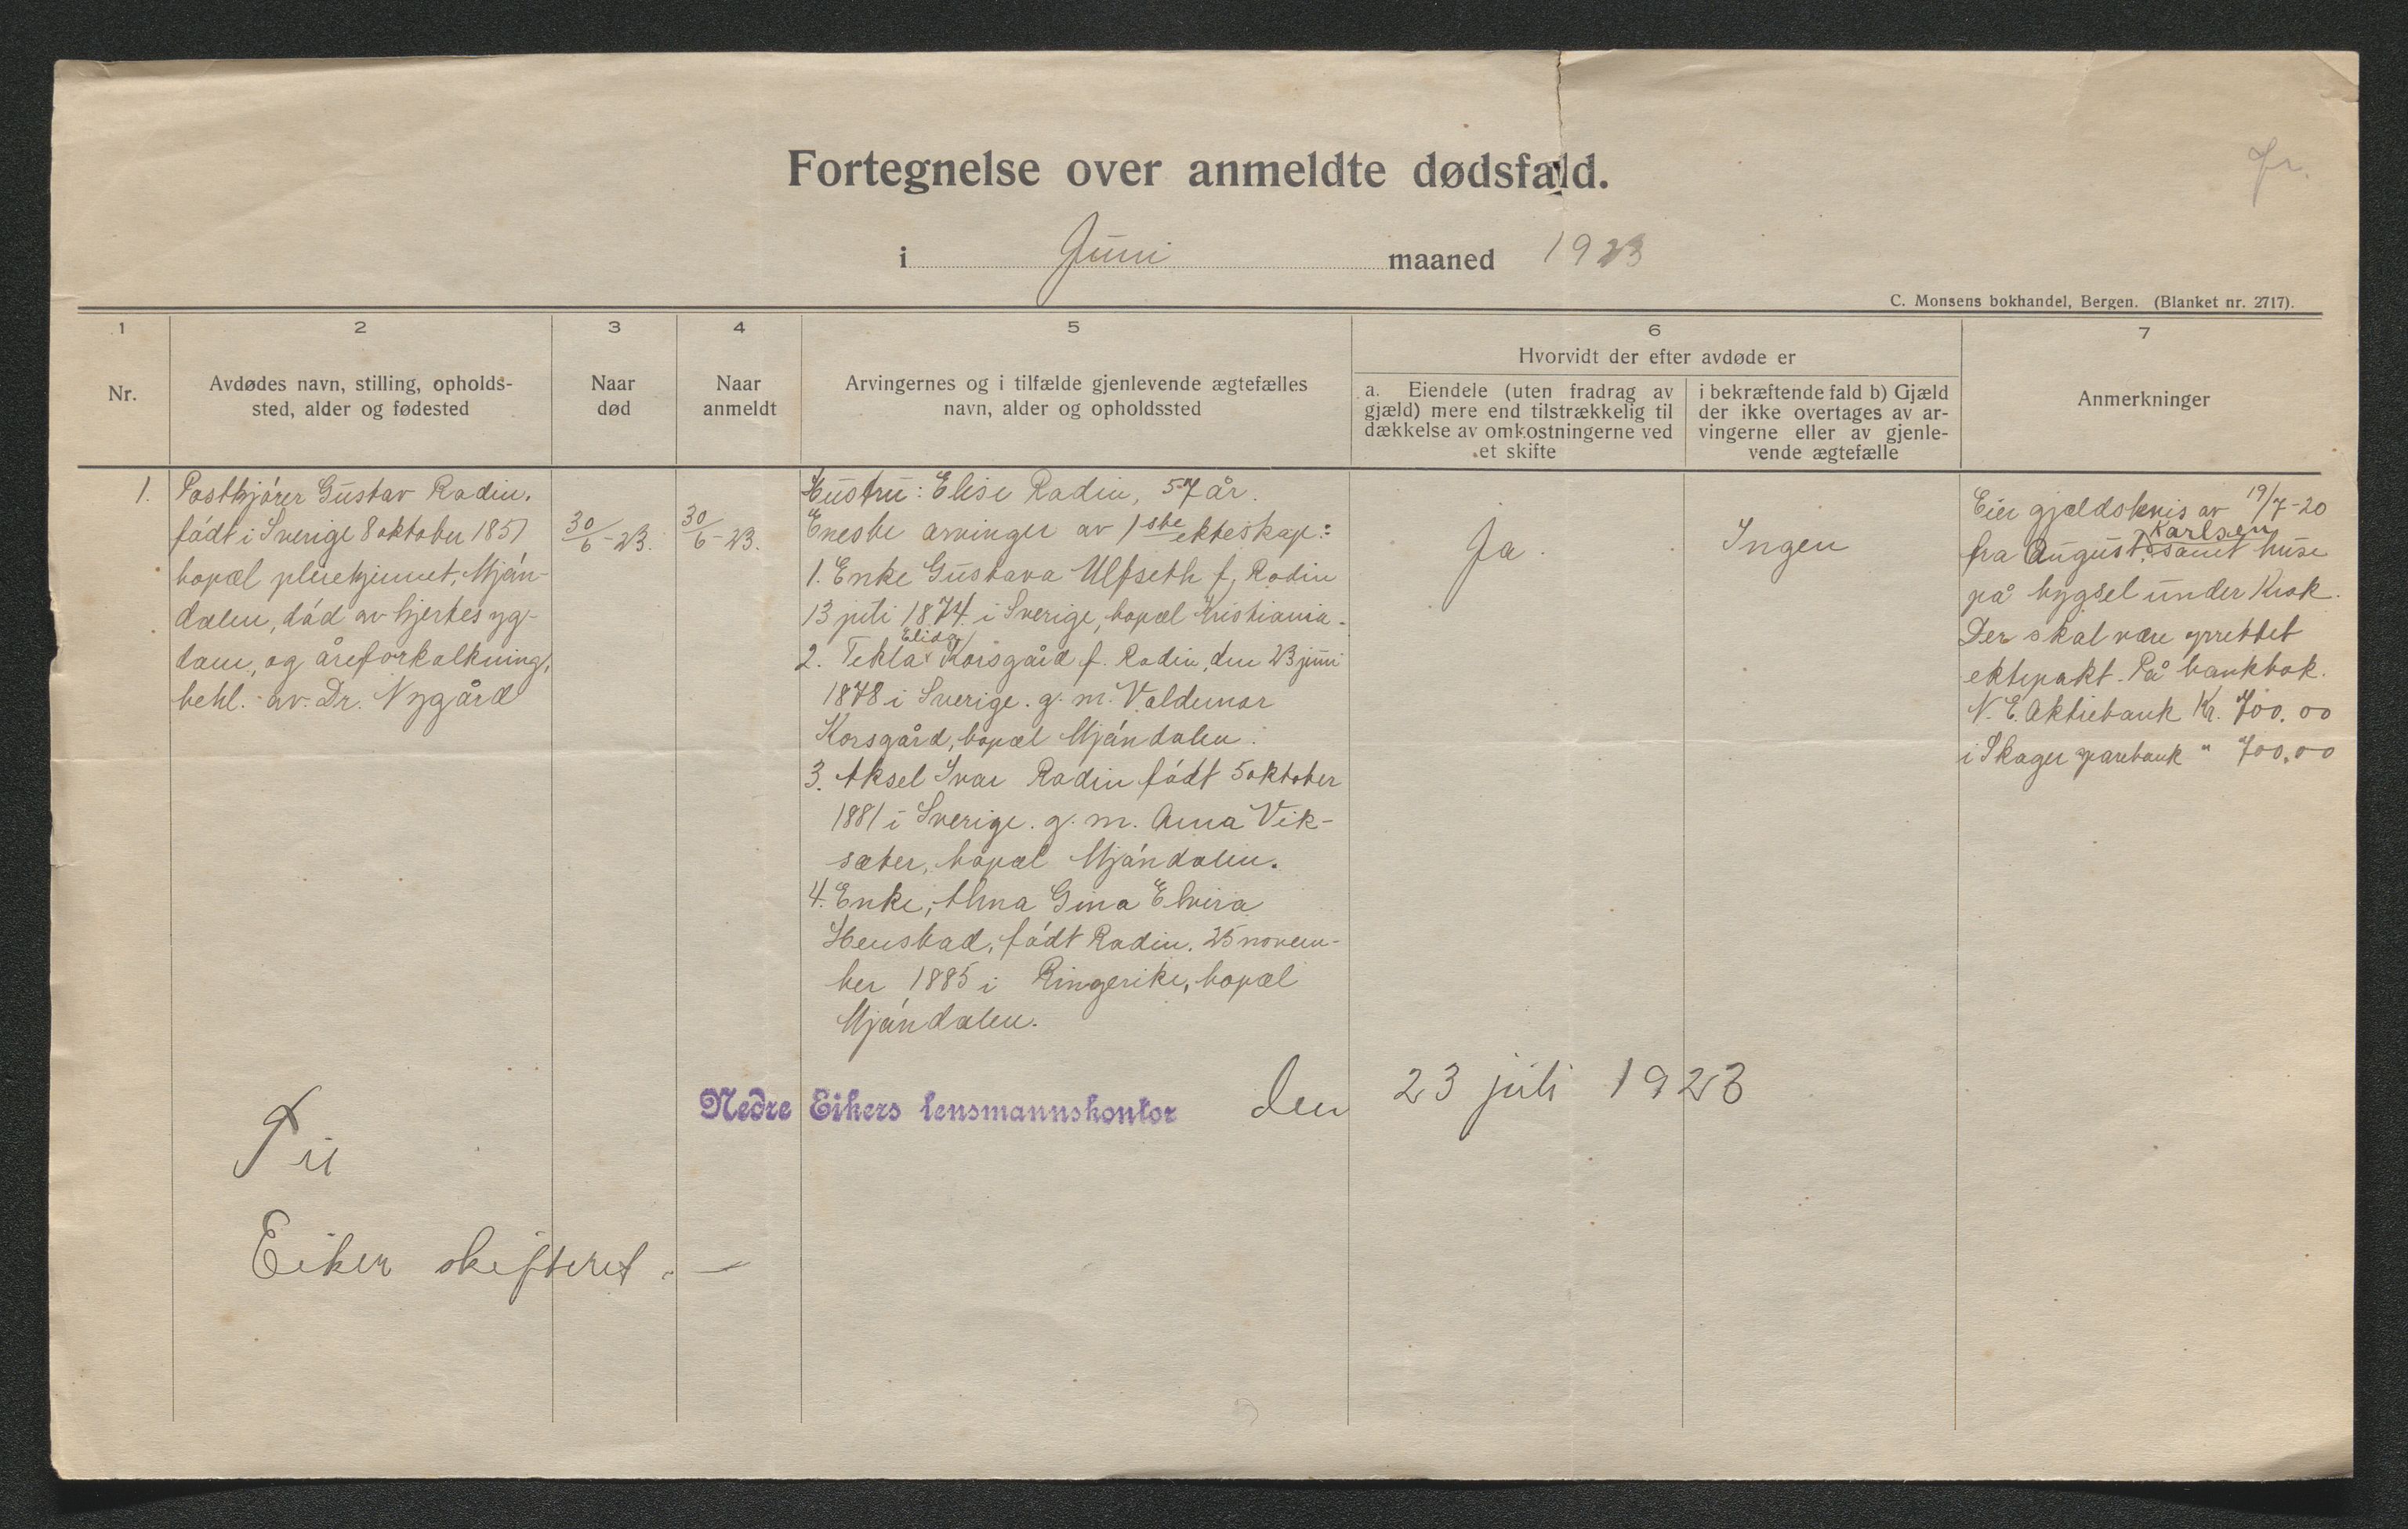 Fortegnelse over anmeldte dødsfald.
i Juni maaned 1923
C. Monsens bokhandel, Bergen. (Blanket nr. 2717).
1
2
3
4
5
6
7
Nr.
Avdødes navn, stilling, opholds-
sted, alder og fødested
Naar
død
Naar
anmeldt
Arvingernes og i tilfælde gjenlevende ægtefælles
navn, alder og opholdssted
Hvorvidt der efter avdøde er
a. Eiendele (uten fradrag av
gjæld) mere end tilstrækkelig til
dækkelse av omkostningerne ved
et skifte
i bekræftende fald b) Gjæld
der ikke overtages av ar-
vingerne eller av gjenle-
vende ægtefælle
Anmerkninger
1.
Postkjører Gustav Rodin.
født i Sverige 8 oktober 1851
bopæl pleiehjemmet, Mjøn-
dalen, død av hjertesyg-
dom, og åreforkalkning,
behl. av Dr. Nygård
30/6-23.
30/6-23.
Hustru: Elise Rodin, 57 år.
Eneste arvinger av 1ste ekteskap:
1. Enke Gustava Ulfseth f. Rodin
13 juli 1874 i Sverige, bopæl Kristiania.
Elida
2. Tekla Korsgård f. Rodin, den 23 juni
1878 i Sverige. g. m. Valdemar
Korsgård, bopæl Mjøndalen.
3. Aksel Ivar Rodin født 5 oktober
1881 i Sverige. g. m. Anna Vik-
sæter, bopæl Mjøndalen.
4. Enke, Alma Gina Elvira
Henstad, født Rodin. 25 novem-
ber 1885 i Ringerike, bopæl
Mjøndalen.
Ja.
Ingen
Eier gjældsbevis av 19/7-20
Karlsen
fra August, samt huse
på bygsel under Krok.
Der skal være oprettet
ektepakt. På bankbok.
N. E. Aktiebank Kr. 700.00
i Skoger sparebank " 700.00
Nedre Eikers lensmannskontor den 23 juli 1923
Til
Eiker skifteret. —